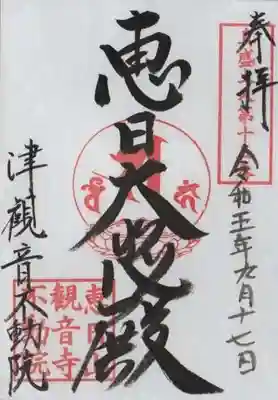 奉拝
令和五年九月十七日
恵日大悲殿
津觀音不動院
恵日山
觀音寺
不動院